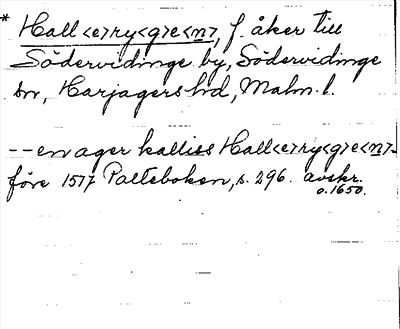 * Hall<e>ry<g>e<n>, f. åker till
Södervidinge by, Södervidinge
sn, Harjagers hd, Malm. l.
-- en ager kalliss Hall<e>ry<g>e<n>-
före 1517 Palteboken, s. 296. avskr.
o. 1650.